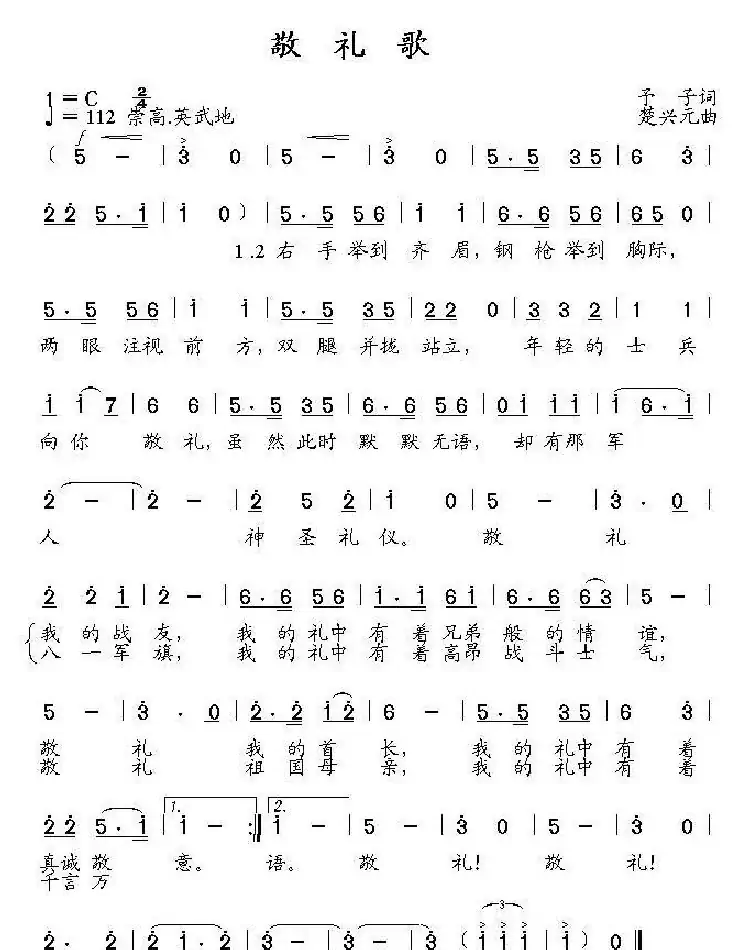 敬 礼 歌
1 = C 2/4 予 子词
♩ = 112 崇高.英武地 楚兴元曲
f
( 5 － | 3̇ 0 | 5 － | 3̇ 0 | 5 . 5 3 5 | 6 3̇ |
2̇ 2̇ 5 . i | i 0 ) | 5 . 5 5 6 | i i | 6 . 6 5 6 | 6 5 0 |
1.2 右 手 举到 齐 眉, 钢 枪 举到 胸际,
5 . 5 5 6 | i i | 5 . 5 3 5 | 2 2 0 | 3 3 2 | 1 1 |
两 眼 注视 前 方, 双 腿 并拢 站立, 年 轻 的 士 兵
i i 7 | 6 6 | 5 . 5 3 5 | 6 . 6 5 6 | 0 i i i | i 6 . i |
向 你 敬 礼, 虽 然 此时 默 默 无语, 却 有那 军
2̇ － | 2̇ － | 2̇ 5 2̇ | i 0 | 5 － | 3̇ . 0 |
人 神 圣 礼 仪。 敬 礼
2̇ 2̇ i | 2̇ － | 6 . 6 5 6 | i . i 6 i | 6 . 6 6 3 | 5 － |
我 的 战 友, 我 的 礼中 有 着 兄弟 般 的 情 谊,
八 一 军 旗, 我 的 礼中 有 着 高昂 战 斗 士 气,
5 － | 3̇ . 0 | 2̇ . 2̇ i 2̇ | 6 － | 5 . 5 3 5 | 6 3̇ |
敬 礼 我 的 首 长, 我 的 礼中 有 着
敬 礼 祖 国 母 亲, 我 的 礼中 有 着
1. 2.
2̇ 2̇ 5 . i | i － :‖ i － | 5 － | 3̇ 0 | 5 － | 3̇ 0 |
真诚 敬 意。 语。 敬 礼! 敬 礼!
千言 万
3
2̇ . 2̇ | 2̇ i . 2̇ | 3̇ － | 3̇ － ( i i i | i ) 0 ‖